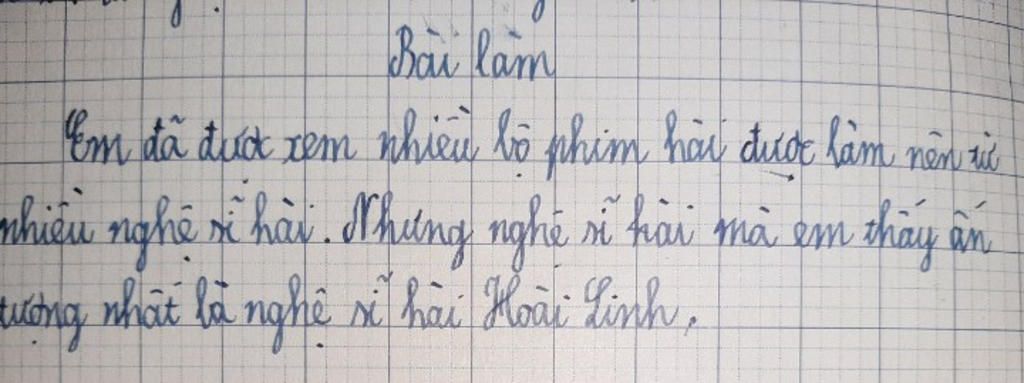 Bài làm
Em đã được xem nhiều bộ phim hài được làm nên từ
nhiều nghệ sĩ hài. Nhưng nghệ sĩ hài mà em thấy ấn
tượng nhất là nghệ sĩ hài Hoài Linh.